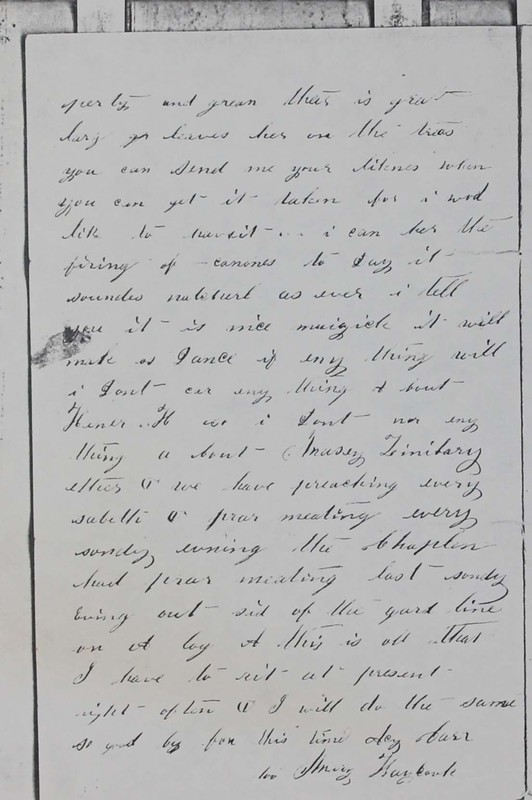 perty and grean thair is grat
larg gr leaves her on the treas
you can send me your liknes when
you can get it taken for i wod
lik to have it i can her the
firing of canones to day it
soundes naturl as ever i tell
you it is nice muzick it will
mak os dance if eny thing will
i dont car eny thing a bout
i dont no eny
thing a bout
we have preaching every
sabeth & prar meating every
sondy evning the Chaplen
had prar meating last sondy
evning out sid of the gard line
on A log this is all that
I have to rit at present
right often & I will do the same
so god by for this time
to Mary